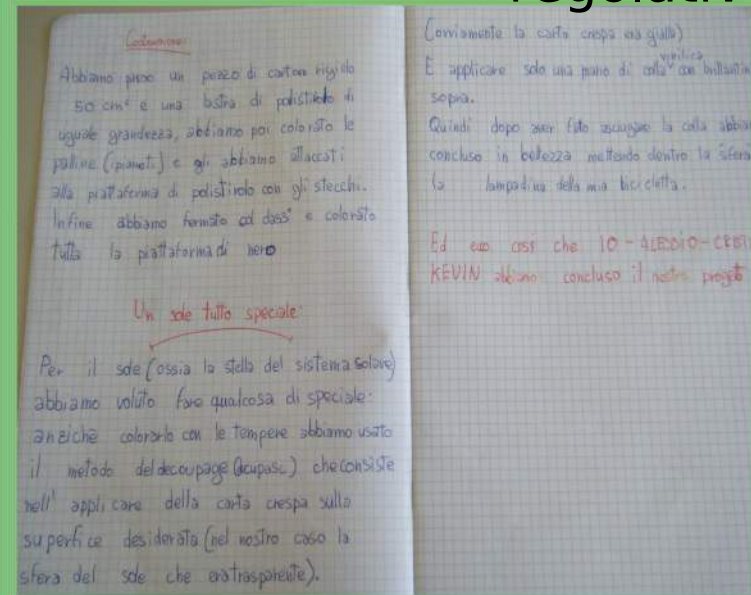 regolativ
Costruzione:
Abbiamo preso un pezzo di carton rigido
50 cm² e una lastra di polistirolo di
uguale grandezza, abbiamo poi colorato le
palline (i pianeti) e gli abbiamo attaccati
alla piattaforma di polistirolo con gli stecchi.
Infine abbiamo formato e colorato
tutta la piattaforma di nero
Un sole tutto speciale
Per il sole (ossia la stella del sistema solare)
abbiamo voluto fare qualcosa di speciale:
anziché colorarlo con le tempere abbiamo usato
il metodo del decoupage che consiste
nell' applicare della carta crespa sulla
superfice desiderata (nel nostro caso la
sfera del sole che era trasparente).
(ovviamente la carta crespa era gialla)
E applicare solo una mano di colla vinilica con brillantin
sopra.
Quindi dopo aver fato asciugare la colla abbia
concluso in bellezza mettendo dentro la sfera
la lampadina della mia bicicletta.
Ed ecco così che IO - ALESSIO - CRISTI
KEVIN abbiamo concluso il nostro progetto